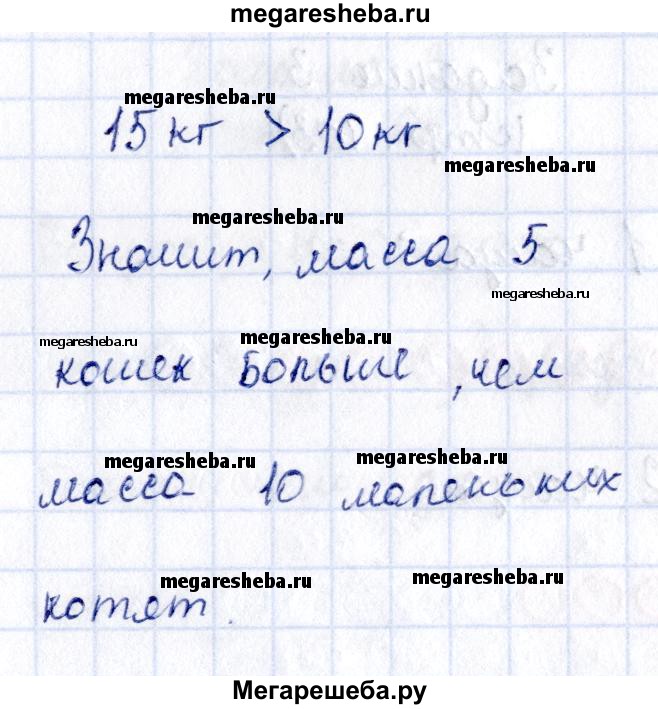 megaresheba.ru
megaresheba.ru
15 кг > 10 кг
megaresheba.ru
megaresheba.ru
Значит, масса 5
megaresheba.ru
megaresheba.ru megaresheba.ru
кошек больше, чем
megaresheba.ru megaresheba.ru
масса 10 маленьких
megaresheba.ru megaresheba.ru
котят.
Мегарешеба.ру